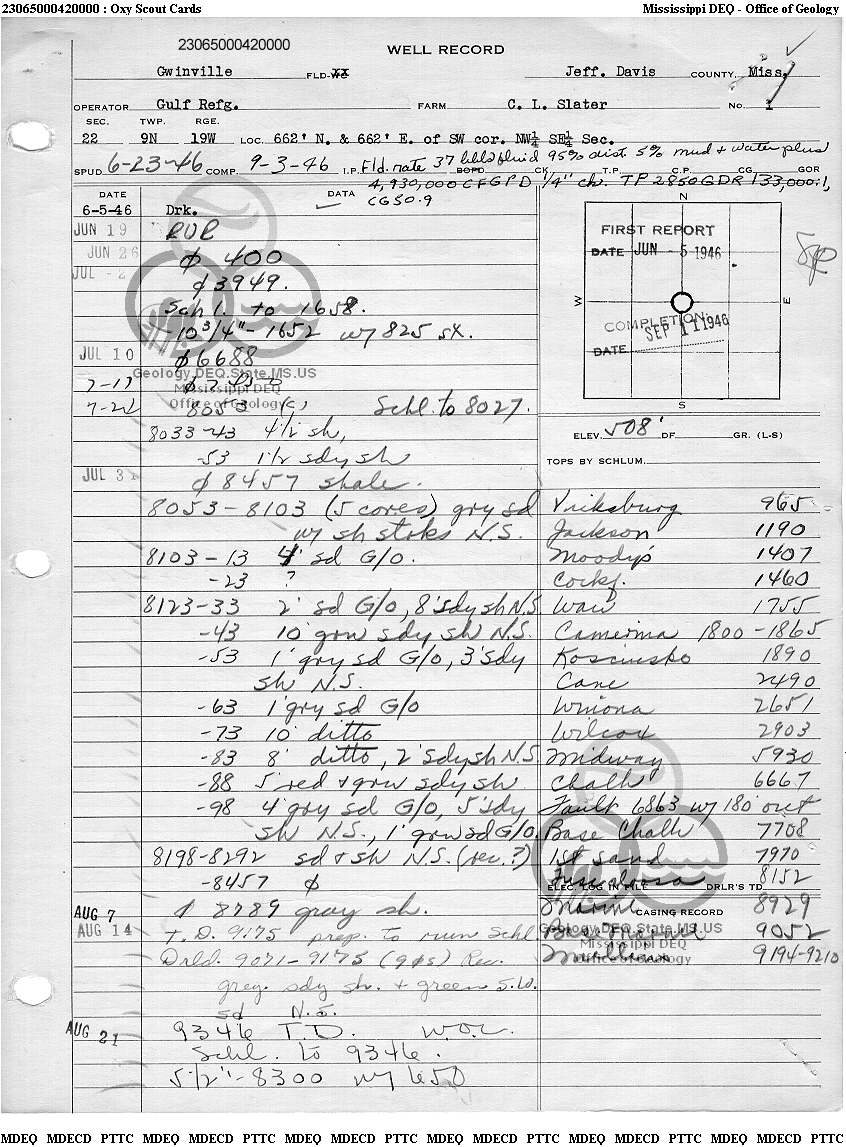 23065000420000 : Oxy Scout Cards
Mississippi DEQ - Office of Geology
23065000420000
WELL RECORD
Gwinville FLD-XX Jeff. Davis COUNTY, Miss.
OPERATOR Gulf Refg. FARM C. L. Slater No. 1
SEC. TWP. RGE.
22 9N 19W LOC. 662' N. & 662' E. of SW cor. NW¼ SE¼ Sec.
SPUD 6-23-46 COMP. 9-3-46 I.P. Fld. rate 37 bbls fluid 95% dist. 5% mud + water plus
BOPD CK. T.P. C.P. CG GOR
4,930,000 CFGPD 1/4" ch. TP 2850 GDR 133,000:1,
CG 50.9
DATE DATA
6-5-46 Drk.
JUN 19 RUR
JUN 26 ϕ 400
JUL - 2 ϕ 3949.
Schl. to 1658.
10 3/4" - 1652 w/ 825 sx.
JUL 10 ϕ 6688
Geology.DEQ.State.MS.US
7-17
Mississippi DEQ
7-24 8053 (c) Schl. to 8027.
Office of Geology
8033-43 4½ sh,
-53 1½ sdy sh
JUL 31 ϕ 8457 shale.
8053-8103 (5 cores) gry sd
w/ sh stoks N.S.
8103-13 4' sd G/O.
-23 ?
8123-33 2' sd G/O, 8' sdy sh N.S.
-43 10' grn sdy sh N.S.
-53 1' gry sd G/O, 3' sdy
sh N.S.
-63 1' gry sd G/O
-73 10' ditto
-83 8' ditto, 2' sdy sh N.S.
-88 5' red + grn sdy sh
-98 4' gry sd G/O, 5' sdy
sh N.S., 1' grn sd G/O.
8198-8292 sd + sh N.S. (rec.?)
-8457 ϕ
AUG 7 ϕ 8789 gray sh.
AUG 14 T.D. 9175 prep. to run Schl
Drld. 9071-9175 (9ϕs) Rec.
grey sdy sh. + green S.W.
sd N.S.
AUG 21 9346 T.D. W.O.C.
Schl. to 9346.
5 1/2" - 8300 w/ 650
N
FIRST REPORT
DATE JUN - 5 1946
W E
COMPLETION:
SEP 11 1946
DATE
S
ELEV. 508' DF GR. (L-S)
TOPS BY SCHLUM.
Vicksburg 965
Jackson 1190
Moody's 1407
Cockf. 1460
1755
Camerina 1800-1865
Kosciusko 1890
Cane 2490
Winona 2651
Wilcox 2903
Midway 5930
Chalk 6667
Fault 6863 w/ 180' out
Base Chalk 7708
1st sand 7970
Tuscaloosa 8152
ELEC. LOG IN FILE DRLR'S TD
Marine 8929
CASING RECORD
Geology.DEQ.State.MS.US
Base Marine 9052
Mississippi DEQ
9194-9210
Office of Geology
MDEQ MDECD PTTC MDEQ MDECD PTTC MDEQ MDECD PTTC MDEQ MDECD PTTC MDEQ MDECD PTTC MDEQ MDECD PTTC